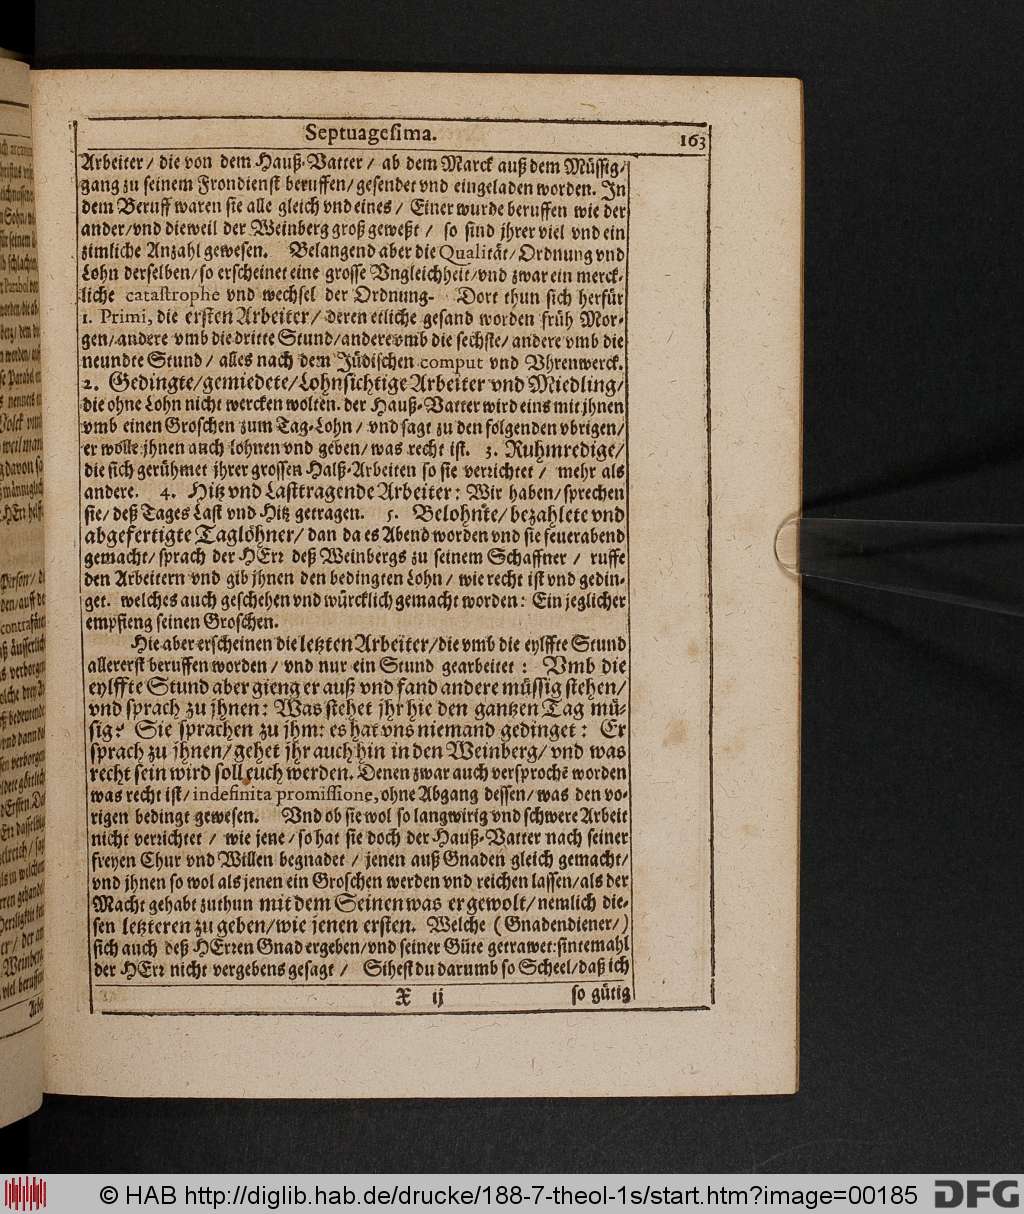 Septuagesima.
163
Arbeiter/ die von dem Hauß-Vatter/ ab dem Marck auß dem Müssig-
gang zu seinem Frondienst beruffen/ gesendet vnd eingeladen worden. In
dem Beruff waren sie alle gleich vnd eines/ Einer wurde beruffen wie der
ander/ vnd dieweil der Weinberg groß gewest/ so sind jhrer viel vnd ein
zimliche Anzahl gewesen. Belangend aber die Qualität/ Ordnung vnd
Lohn derselben/ so erscheinet eine grosse Vngleichheit/ vnd zwar ein merck-
liche catastrophe vnd wechsel der Ordnung- Dort thun sich herfür
1. Primi, die ersten Arbeiter/ deren etliche gesand worden früh Mor-
gen/ andere vmb die dritte Stund/ andere vmb die sechste/ andere vmb die
neundte Stund/ alles nach dem Jüdischen comput vnd Vhrenwerck.
2. Gedingte/ gemiedete/ Lohnsichtige Arbeiter vnd Miedling/
die ohne Lohn nicht wercken wolten. der Hauß-Vatter wird eins mit jhnen
vmb einen Groschen zum Tag-Lohn/ vnd sagt zu den folgenden vbrigen/
er wolle jhnen auch lohnen vnd geben/ was recht ist. 3. Ruhmredige/
die sich gerühmet jhrer grossen Halß-Arbeiten so sie verrichtet/ mehr als
andere. 4. Hitz vnd Lasttragende Arbeiter: Wir haben/ sprechen
sie/ deß Tages Last vnd Hitz getragen. 5. Belohnte/ bezahlete vnd
abgefertigte Taglöhner/ dan da es Abend worden vnd sie feuerabend
gemacht/ sprach der HErr deß Weinbergs zu seinem Schaffner/ ruffe
den Arbeitern vnd gib jhnen den bedingten Lohn/ wie recht ist vnd gedin-
get. welches auch geschehen vnd würcklich gemacht worden: Ein jeglicher
empfieng seinen Groschen.
Hie aber erscheinen die letzten Arbeiter/ die vmb die eylffte Stund
allererst beruffen worden/ vnd nur ein Stund gearbeitet: Vmb die
eylffte Stund aber gieng er auß vnd fand andere müssig stehen/
vnd sprach zu jhnen: Was stehet jhr hie den gantzen Tag mü-
sig? Sie sprachen zu jhm: es hat vns niemand gedinget: Er
sprach zu jhnen/ gehet jhr auch hin in den Weinberg/ vnd was
recht sein wird soll euch werden. Denen zwar auch versprochē worden
was recht ist/ indefinita promissione, ohne Abgang dessen/ was den vo-
rigen bedingt gewesen. Vnd ob sie wol so langwirig vnd schwere Arbeit
nicht verrichtet/ wie jene/ so hat sie doch der Hauß-Vatter nach seiner
freyen Chur vnd Willen begnadet/ jenen auß Gnaden gleich gemacht/
vnd jhnen so wol als jenen ein Groschen werden vnd reichen lassen/ als der
Macht gehabt zuthun mit dem Seinen was er gewolt/ nemlich die-
sen letzteren zu geben/ wie jenen ersten. Welche (Gnadendiener/)
sich auch deß HErren Gnad ergeben/ vnd seiner Güte getrawet: sintemahl
der HErr nicht vergebens gesagt/ Sihest du darumb so Scheel/ daß ich
X ij
so gütig
© HAB http://diglib.hab.de/drucke/188-7-theol-1s/start.htm?image=00185
DFG